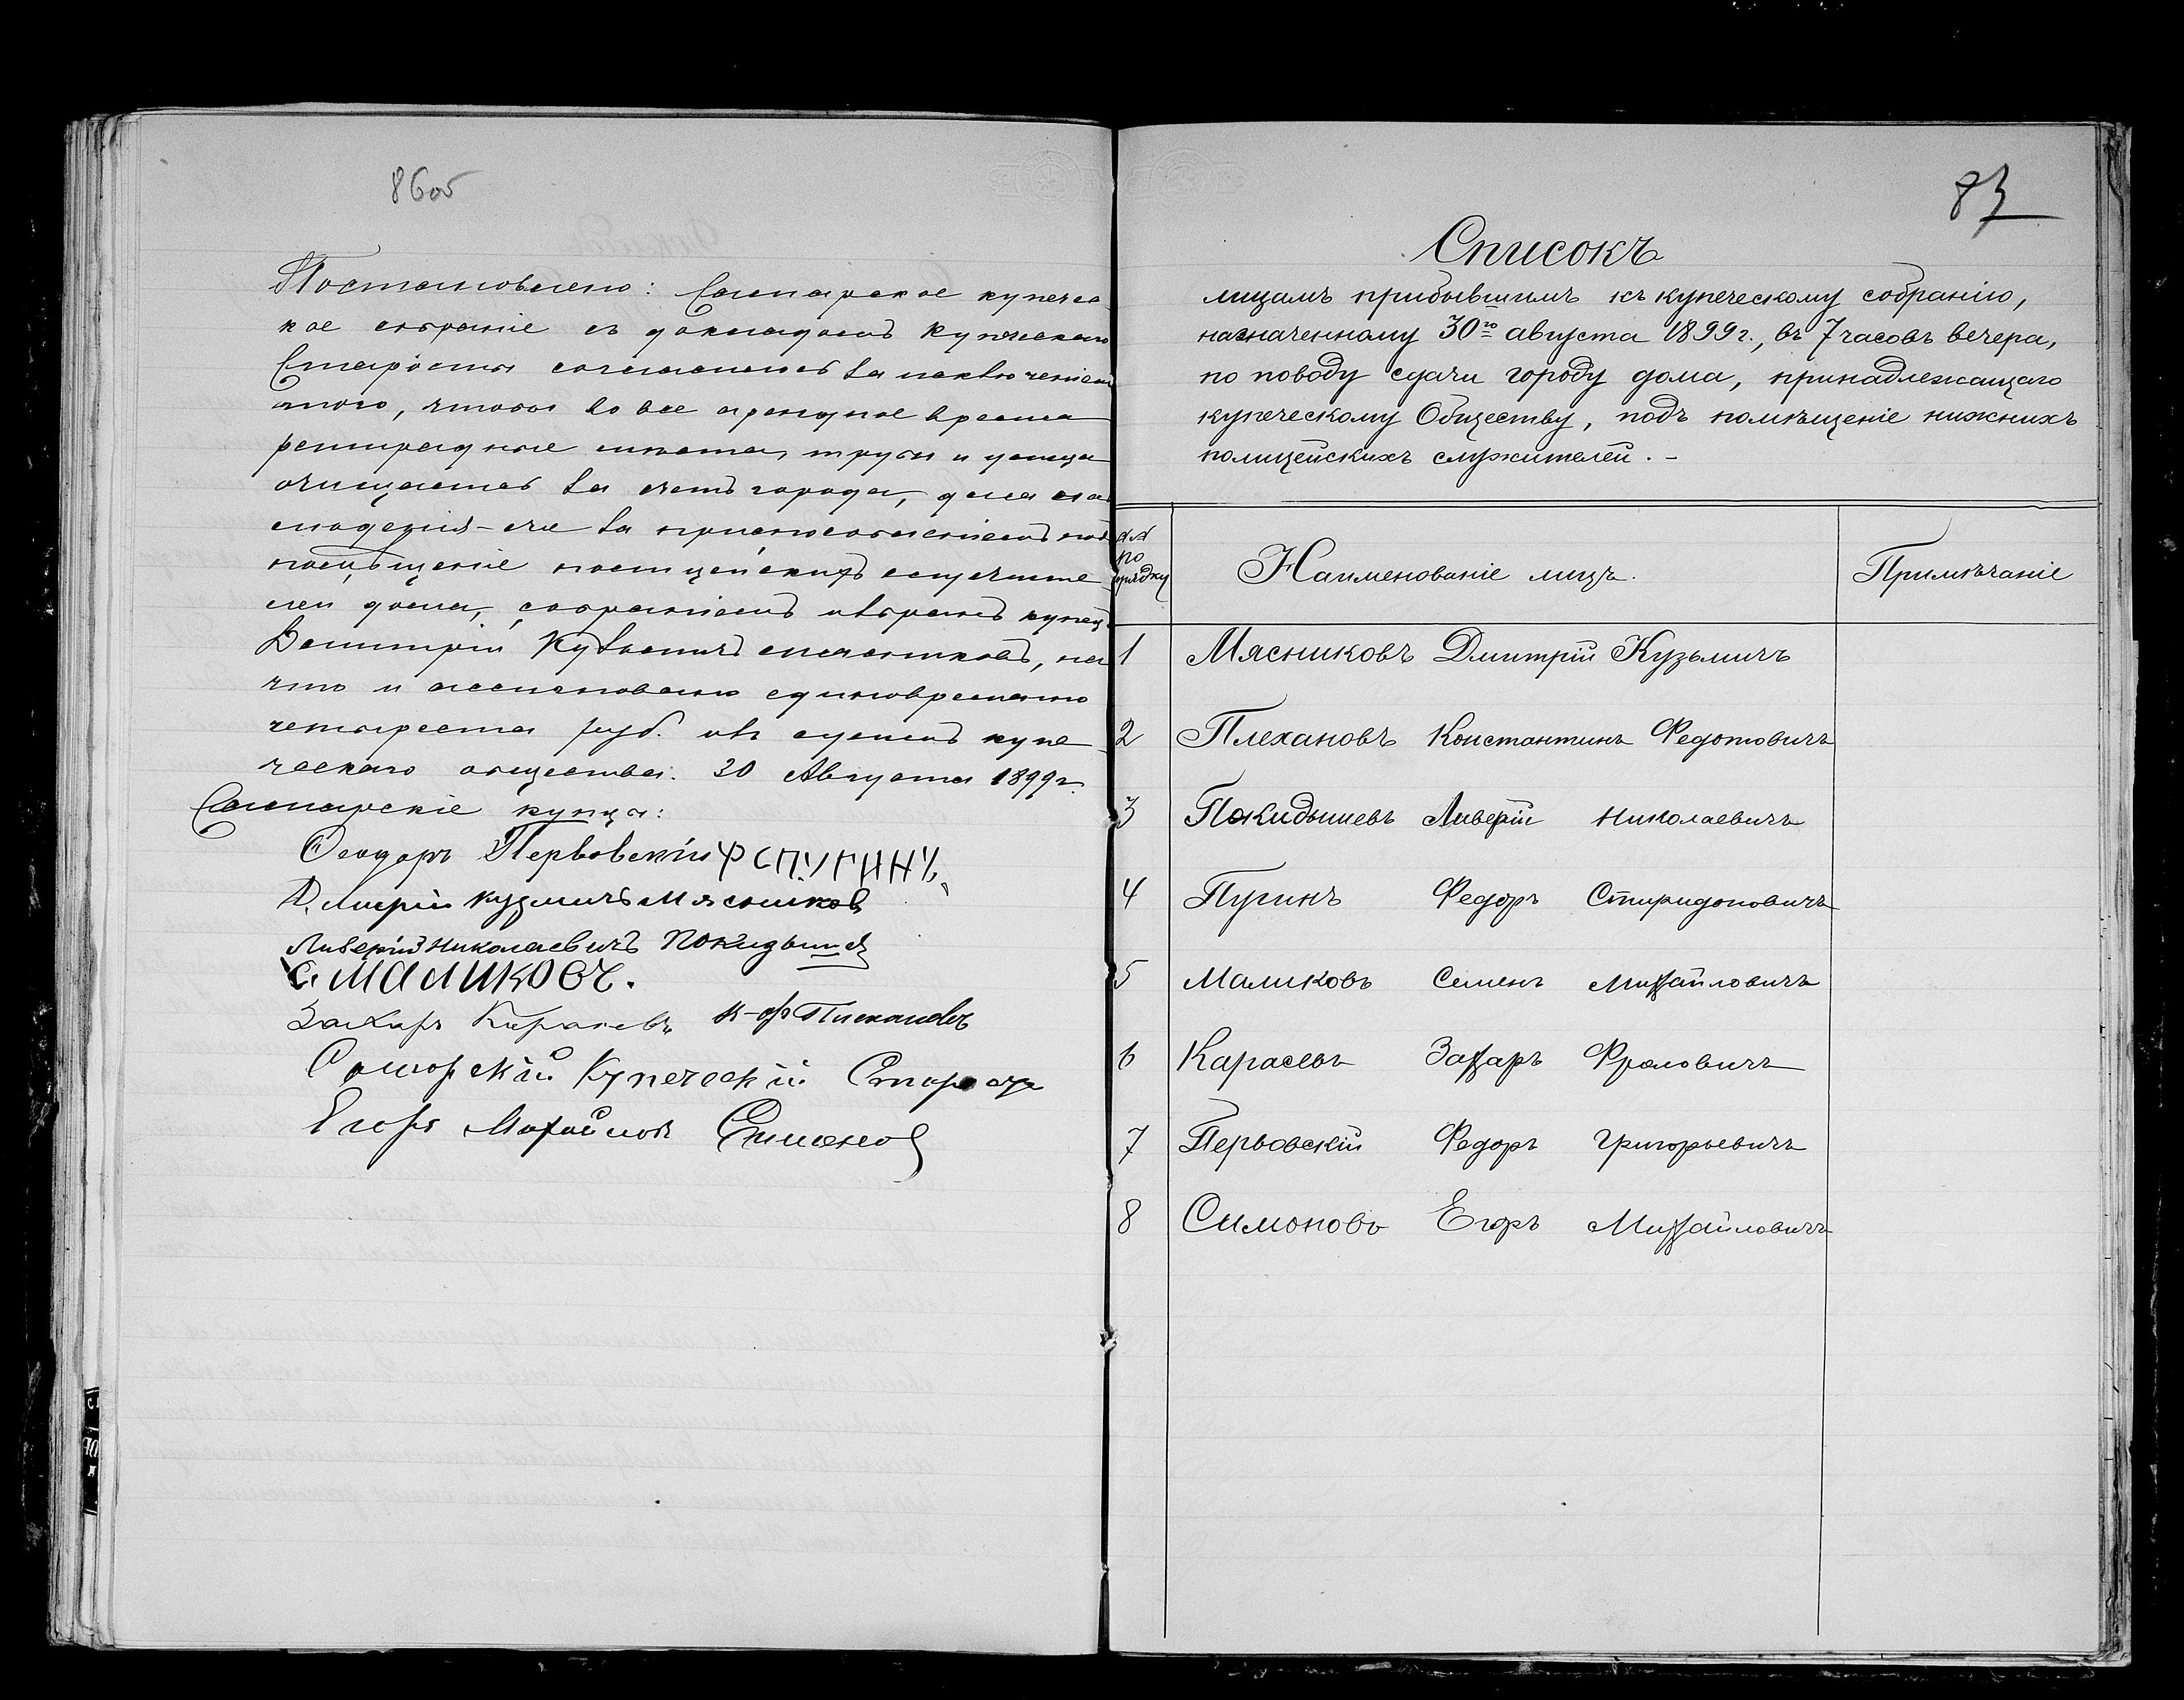 86об
Постановлено: Самарское купечес
кое собраніе съ докладомъ Купеческаго
Старосты согласилось за исключеніемъ
того, чтобы во все арендное время
ретирадные мѣста, трубы и улица
очищались за счетъ города, для на
блюденія-же за приспособленіемъ подъ
помѣщеніе полицейскихъ служите
лей дома, собраніемъ избранъ купец
Дмитрій Кузьмичъ Мясниковъ, на
что и ассигновано единовременно
четыреста руб. изъ суммъ купе
ческаго общества. 30 Августа 1899 г.
Самарскіе купцы:
Феодоръ Перво́вскій Ф С ПУГИНЪ
Дмитрій Кузмичъ Мясников
Ливерій Николаевичъ Покидышев
С. Маликовъ.
Захаръ Карасевъ К-Ф Плехановъ
Самарскій Купеческій Староста
Егоръ Михайлов Симонов
87
Списокъ
лицамъ прибывшимъ къ купеческому собранію,
назначенному 30го августа 1899 г., въ 7 часовъ вечера,
по поводу сдачи городу дома, принадлежащаго
купеческому Обществу, подъ помѣщеніе нижнихъ
полицейскихъ служителей. -
№№ по порядку Наименованіе лицъ. Примѣчаніе
1 Мясниковъ Дмитрій Кузьмичъ
2 Плехановъ Константинъ Федотовичъ
3 Покидышевъ Ливерій Николаевичъ
4 Пугинъ Федоръ Спиридоновичъ
5 Маликовъ Семенъ Михайловичъ
6 Карасевъ Захаръ Фроловичъ
7 Перьовскій Федоръ Григорьевичъ
8 Симоновъ Егоръ Михайловичъ